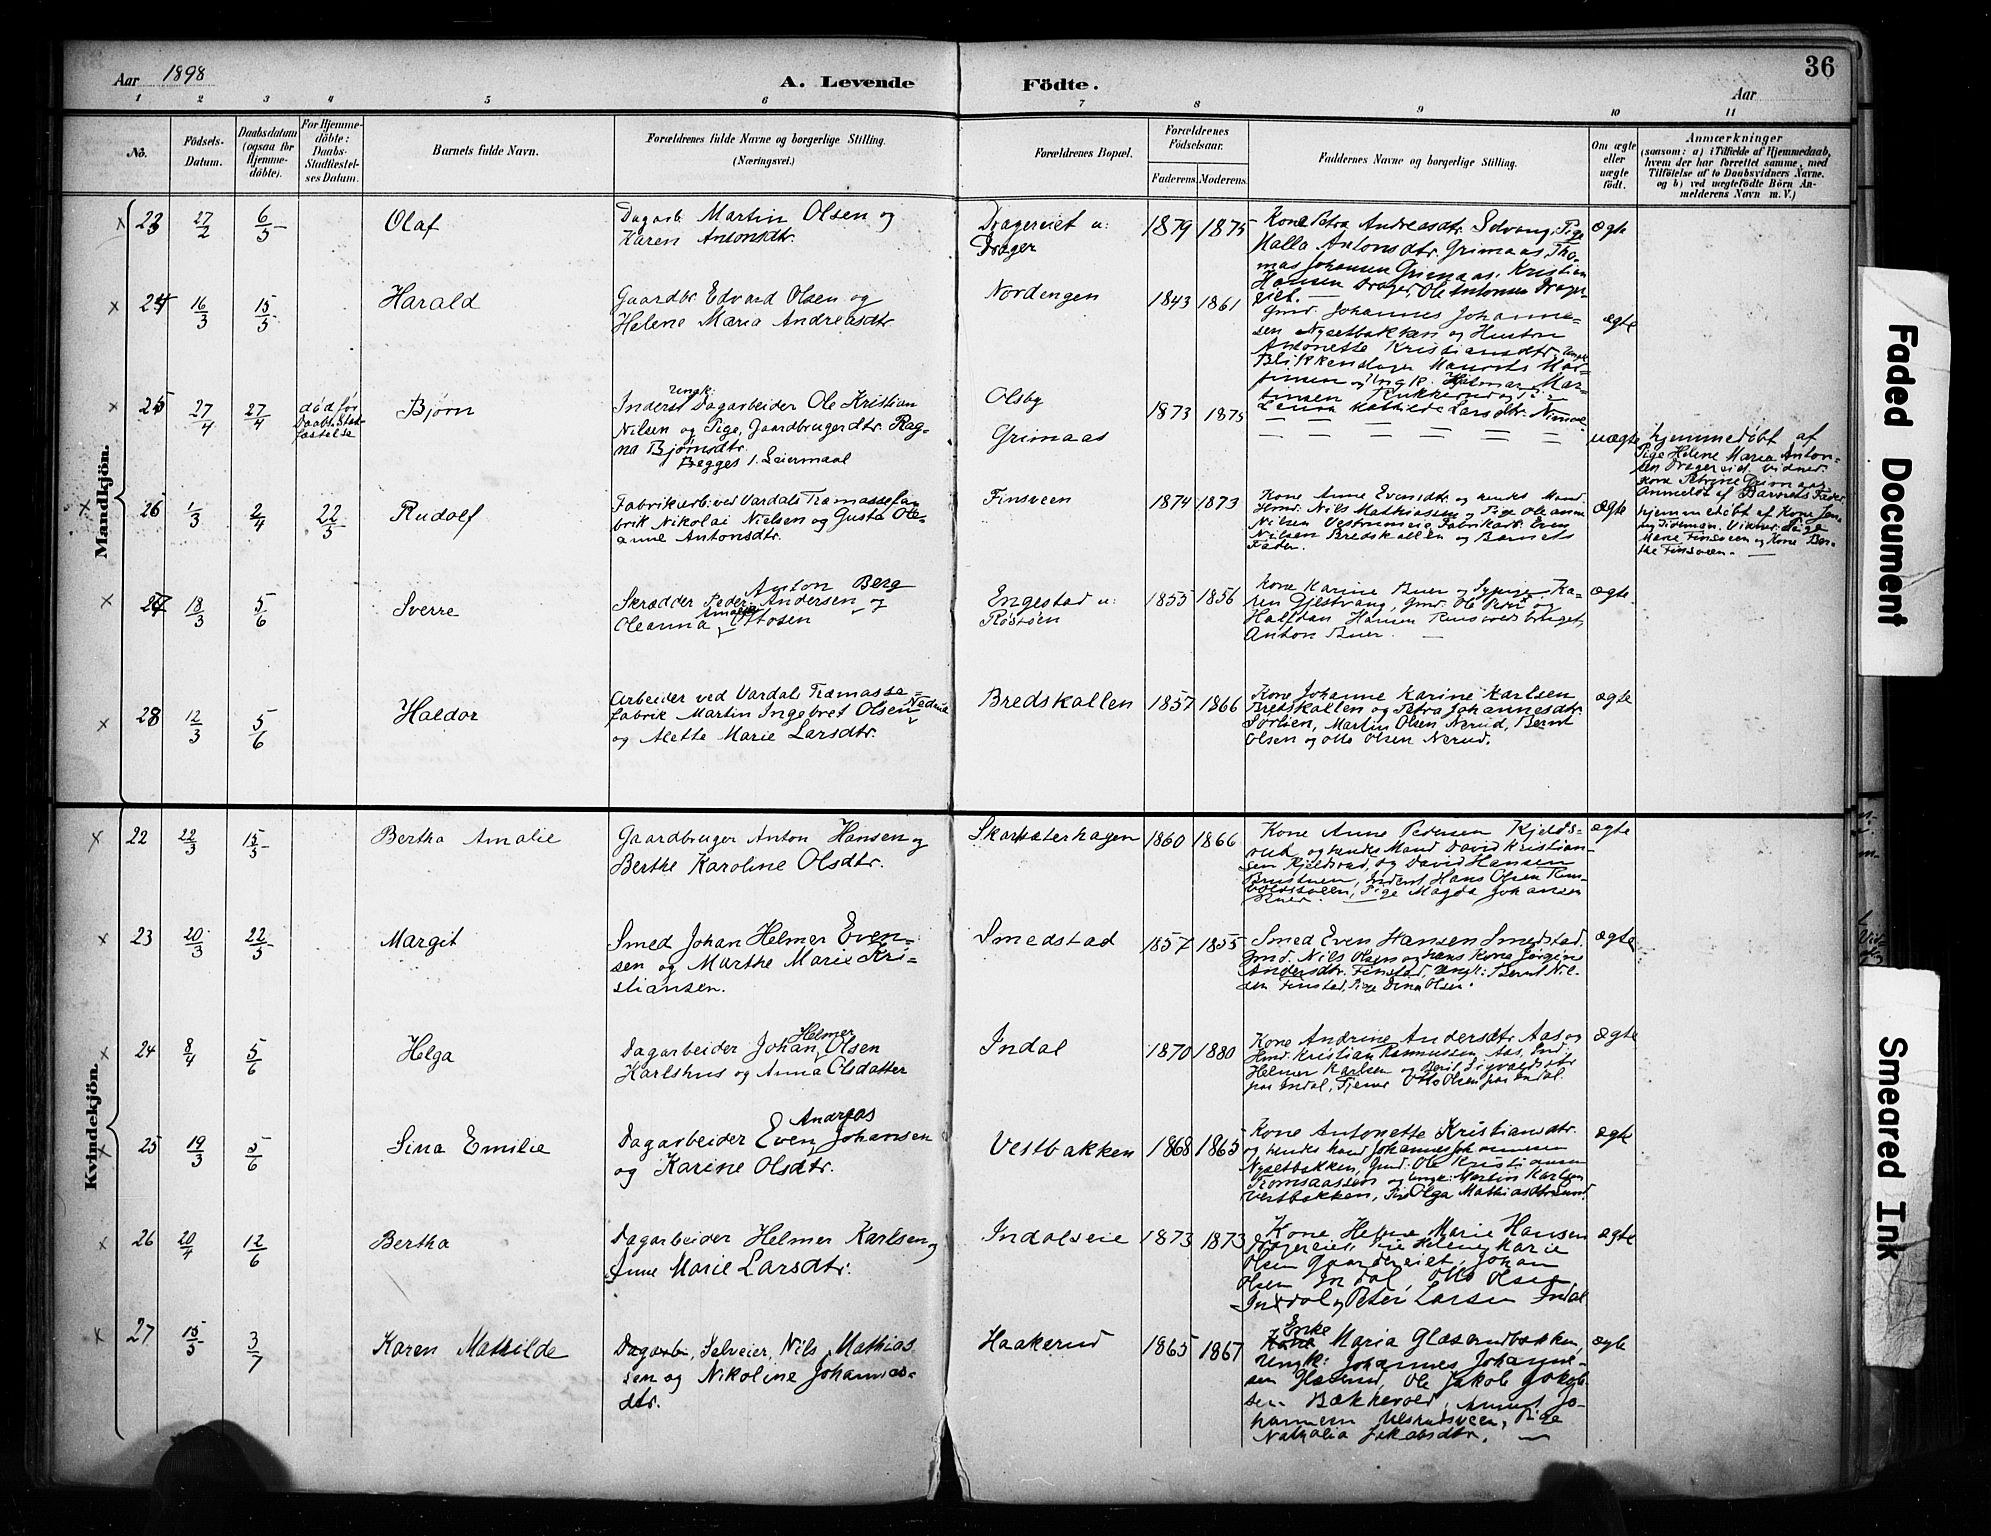 36
Aar 1898
A. Levende Födte.
Aar
1 2 3 4 5 6 7 8 9 10 11
No.
Födsels-Datum.
Daabsdatum (ogsaa för Hjemme-döbte).
For Hjemme-döbte: Daabs-Stadfæstel-ses Datum.
Barnets fulde Navn.
Forældrenes fulde Navne og borgerlige Stilling.
(Næringsvei.)
Forældrenes Bopæl.
Forældrenes Födselsaar.
Faderens. Moderens.
Faddernes Navne og borgerlige Stilling.
Om ægte eller uægte födt.
Anmærkninger
(saasom: a) i Tilfælde af Hjemmedaab,
hvem der har forrettet samme, med
Tilföielse af to Daabsvidners Navne.
og b) ved uægtefödte Börn An-
melderens Navn m. V.)
Mandkjön.
× 23 27/2 6/5 Olaf
Dagarb. Martin Olsen og
Karen Antonsdtr.
Dragereiet u:
Drager
1879 1875
Kone Petra Andreasdtr. Solvang, Pige
Kalla Antonsdtr. Grimaas, Tho-
mas Johansen Grimaas, Kristian
Hansen Drager, Ole Antonsen Drager-
eiet.
ægte
× 24 16/3 15/5 Harald
Gaardbr. Edvard Olsen og
Helene Maria Andreasdtr.
Nordengen
1843 1861
Gmd. Johannes Johanne-
sen Nysetbakken og Hustru
Antonette Kristiansdtr. Ungk.
Blikkenslager Maurits Mar-
tinsen og Ungk. Helmer Mar-
tinsen
Laura Mathilde Larsdtr.
ægte
× 25 27/4 27/4 død før Daabs. Stad-fæstelse Bjørn
Ungk.
Inderst Dagarbeider Ole Kristian
Nilsen og Pige, Gaardbrugerdtr. Rag-
na Bjørnsdtr.
Begges 1. Leiermaal
Olsby
Grimaas
1873 1875
uægte
hjemmedøbt af
Pige Helene Marie Anton-
sen Dragereiet. Vidner:
Kone Petrine Grimaas
Anmeldt af Barnets Fader
× 26 1/3 2/4 22/5 Rudolf
Fabrikarb. ved Vardals Træmassefa-
brik Nikolai Nielsen og Gusta Ole-
anne Antonsdtr.
Finsveen
1874 1873
Kone Anne Evensdtr. og hendes Mand
Hmd. Nils Mathiassen og Pige Oleanna
Nilsen Vestrumseie, Fabrikarb. Even
Nilsen Bredskallen og Barnets
Fader.
ægte
hjemmedøbt af Kone Jen-
ny Tideman. Vidner: Pige
Marie Finsveen og Kone Ber-
the Finsveen.
× 27 18/3 5/6 Sverre
Anton Berg
Skrædder Peder Andersen og
Amalia
Oleanna Ottosen
Engestad u:
Røstøen
1855 1856
Kone Karine Buer og Sypige Ka-
ren Gjestvang, Gmd. Ole Buer og
Halfdan Hansen
Anton Buer.
ægte
× 28 12/3 5/6 Haldor
Arbeider ved Vardals Træmasse-
fabrik Martin Ingebret Olsen Nedrud
og Alette Marie Larsdtr.
Bredskallen
1857 1866
Kone Johanne Karine Karlsen
Bredskallen og Petra Johannesdtr.
Sørlien, Martin Olsen Nerud, Bernt
Olsen og Otto Olsen Nerud.
ægte
Kvindekjön.
× 22 22/3 15/5 Bertha Amalie
Gaardbruger Anton Hansen og
Berthe Karoline Olsdtr.
Skarsæterhagen
1860 1866
Kone Anne Pedersen Kjelds-
rud, og hendes Mand David Kristian-
sen Kjeldsrud, og David Hansen
Brustuen, Inderst Hans Olsen
Pige Magda Johansen
Buer.
ægte
× 23 20/3 22/5 Margit
Smed Johan Helmer Even-
sen og Marthe Marie Kri-
stiansen.
Smedstad
1857 1855
Smed Even Hansen Smedstad.
Gmd. Nils Olsen og hans Kone Jørgine
Andersdtr. Finstad, Ungk: Bernt Nil-
sen Finstad, Pige Dina Olsen.
ægte
× 24 8/4 5/6 Helga
Helmer
Dagarbeider Johan Olsen
Karlshus og Anna Olsdatter
Indal
1870 1880
Kone Andrine Andersdtr. Aas og
Hmd. Kristian Rasmussen Aas, Ind.
Helmer Karlsen og Berit Sigvaldsdtr
paa Indal, Tjener Otto Olsen paa Indal.
ægte
× 25 19/3 5/6 Sina Emilie
Andreas
Dagarbeider Even Johansen
og Karine Olsdtr.
Vestbakken
1868 1865
Kone Antonette Kristiansdtr.
og hendes Mand Johannes Johannesen
Nysetbakken, Gmd: Ole Kristiansen
Tromsaassen og Ungk: Martin Karlsen
Vestbakken, Pige Olga Mathiasdtr
ægte
× 26 20/4 12/6 Bertha
Dagarbeider Helmer Karlsen og
Anne Marie Larsdtr.
Indalseie
1873 1873
Kone Helene Marie Hansen
Dragereiet, Pige Helene Marie
Olsen Gaardereiet, Johan
Olsen Indal, Otto Olsen
Indal og Peter Larsen Indal
ægte
× 27 15/5 3/7 Karen Mathilde
Dagarb., Selveier, Nils Mathias
sen og Nikoline Johannes-
dtr.
Haakerud
1865 1867
Enke
Kone Maria Glæserudbakken,
Ungk: Johannes Johanne-
sen Glæserud, Ole Jakob Jakob-
sen Bækkevold, August Jo-
hannesen Ulsrudsveen, Pige
Nathalia Jakobsdtr.
ægte
Faded Document
Smeared Ink